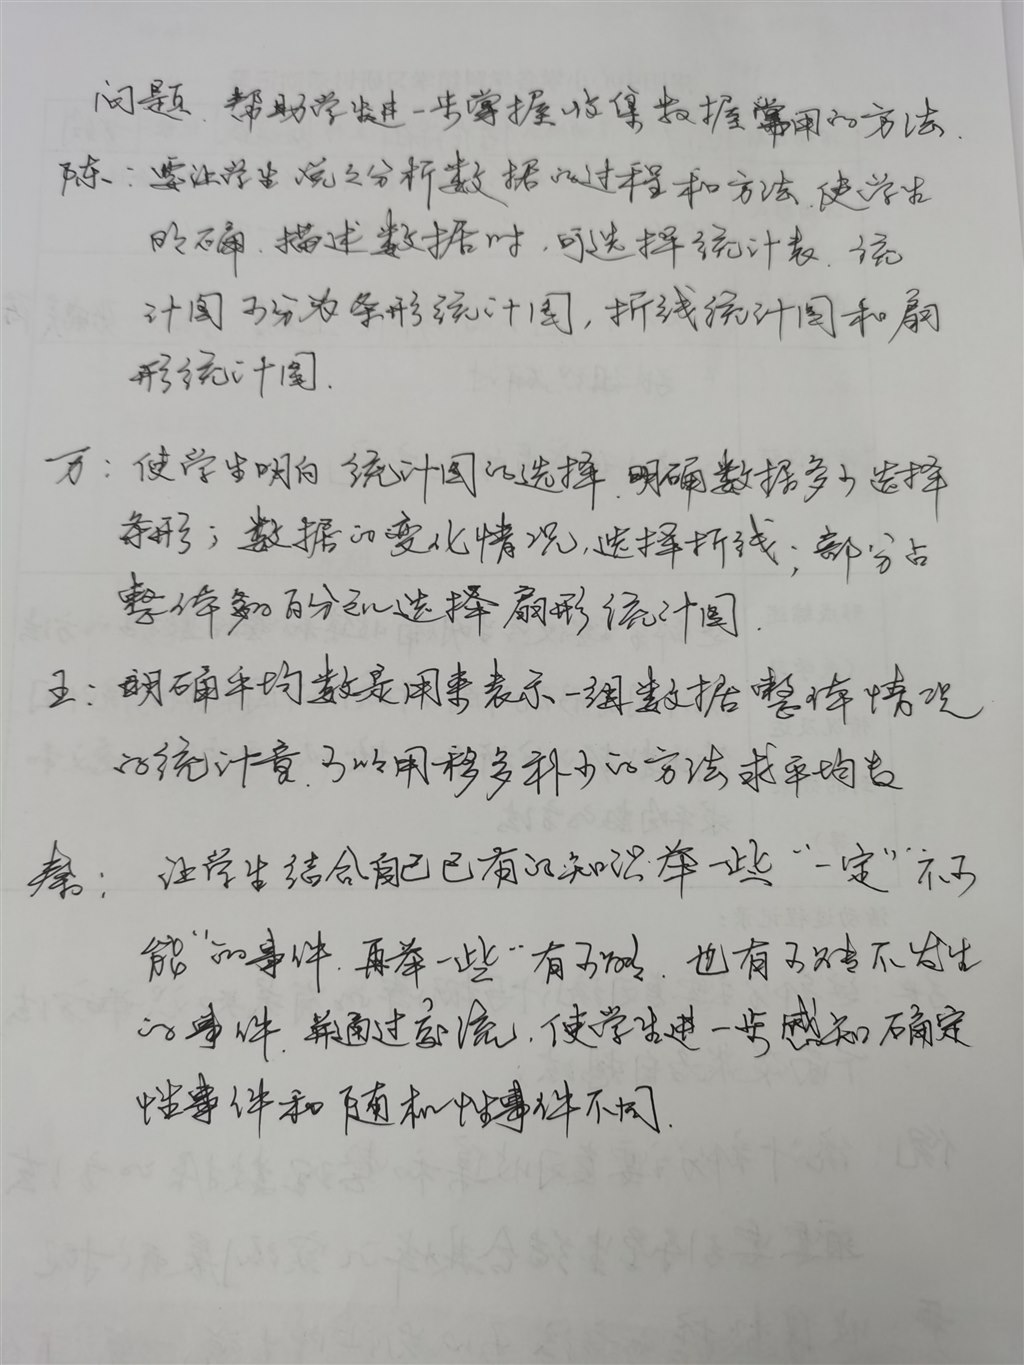 问题.帮助学生进一步掌握收集数据常用的方法.
陈:要让学生说之分析数据的过程和方法.使学生
明确.描述数据时,可选择统计表.统
计图可分为条形统计图,折线统计图和扇
形统计图.
万:使学生明白统计图的选择.明确数据多少选择
条形;数据的变化情况,选择折线;部分占
整体的百分之几选择扇形统计图.
王:明确平均数是用来表示一组数据整体情况
的统计量.可以用移多补少的方法求平均数
秦:让学生结合自己已有的知识举一些“一定”“不可
能”的事件.再举一些“有可能.也有可能不发生
的事件.并通过交流,使学生进一步感知确定
性事件和随机性事件不同.